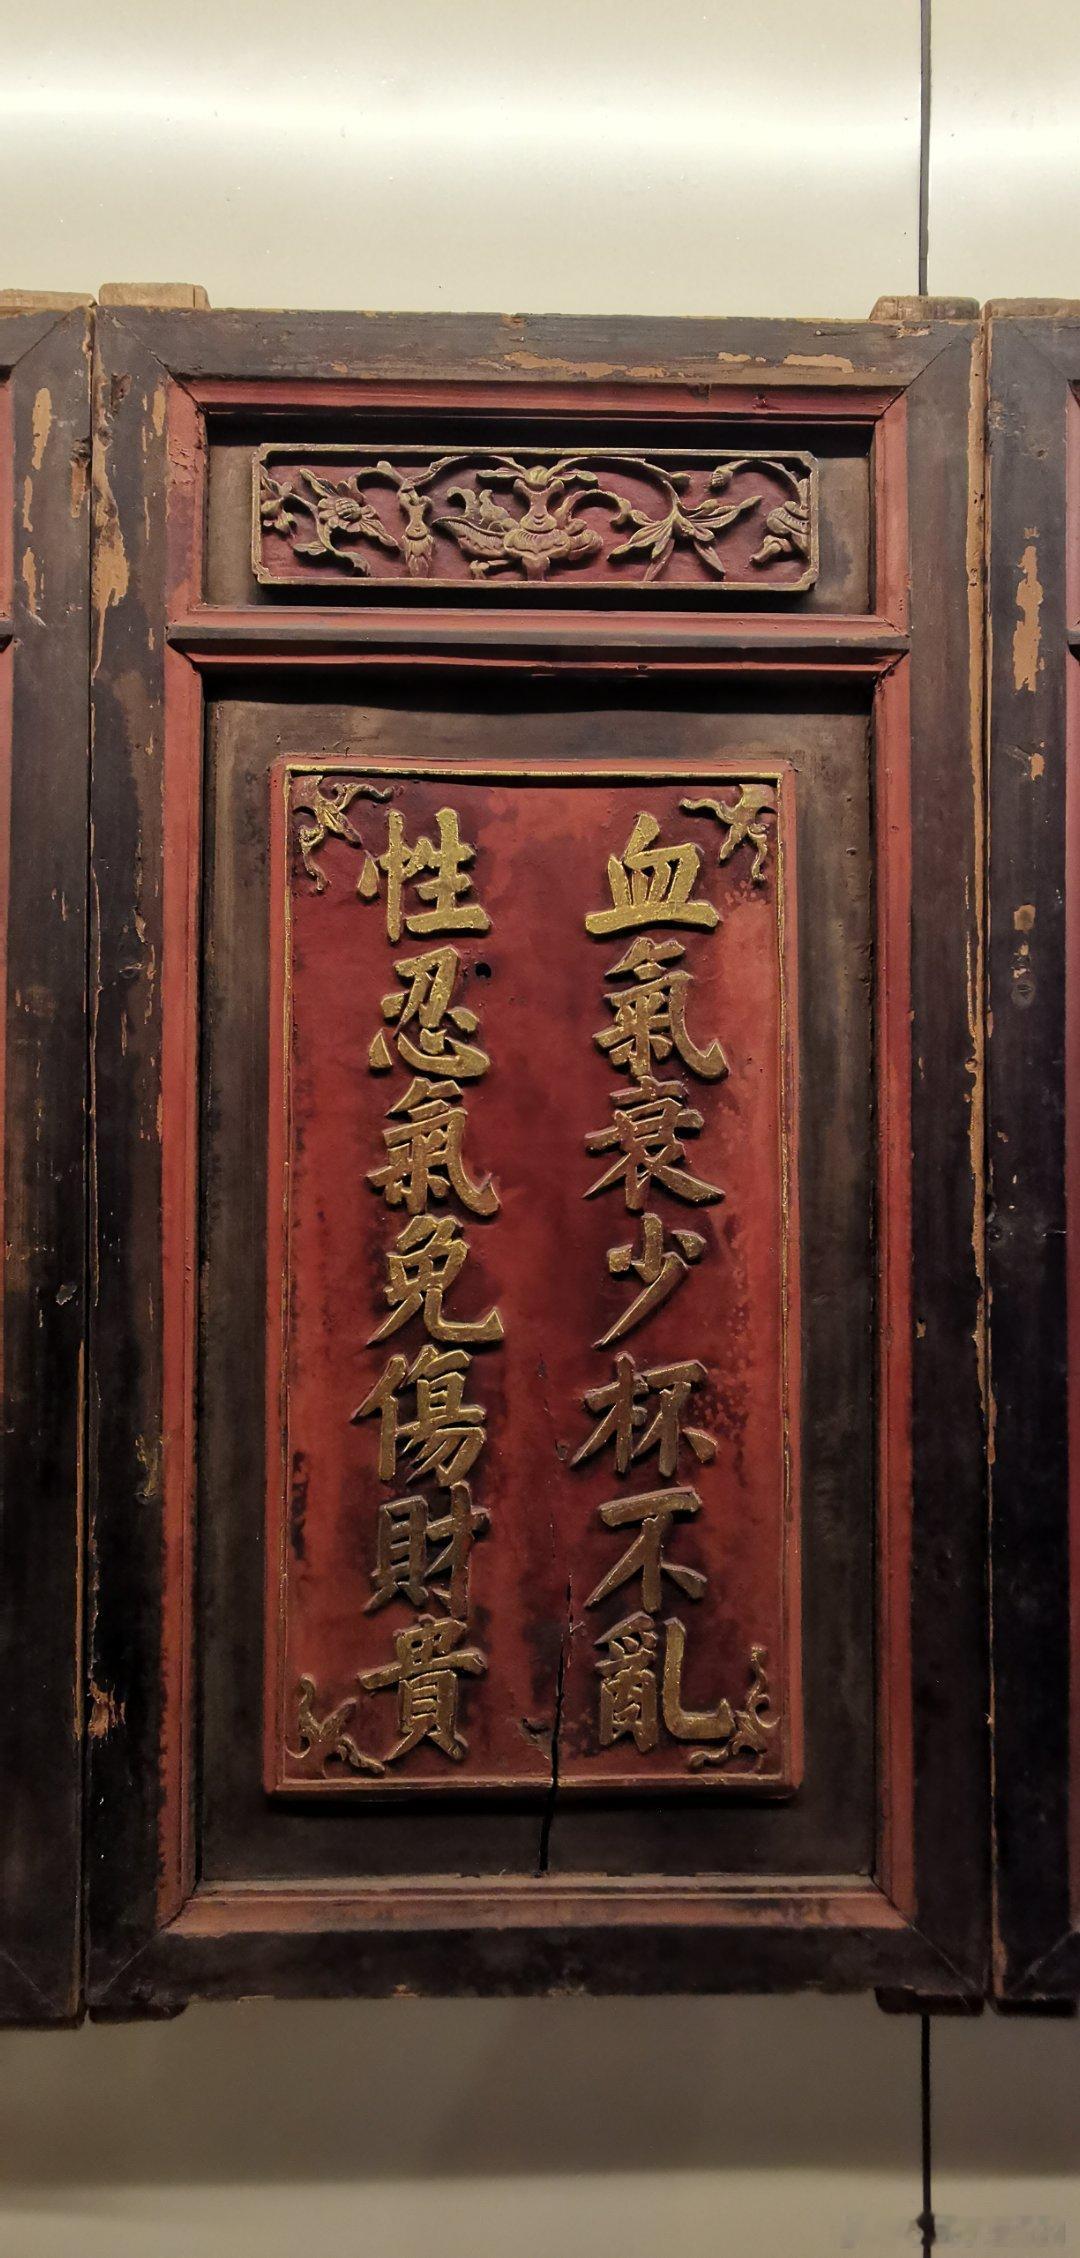 血氣衰少杯不亂
性忍氣免傷財貴